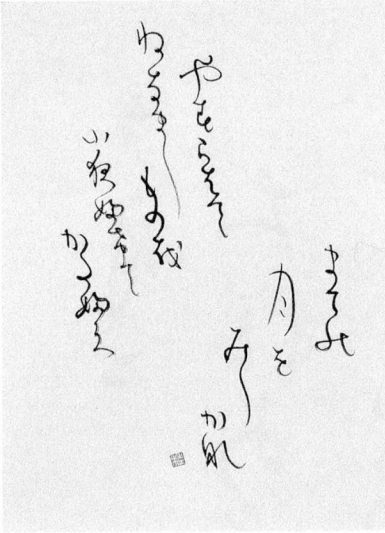 やすらはて
ねなまし
ものを
小夜ふけて
かたふく
まての
月を
みし
かな